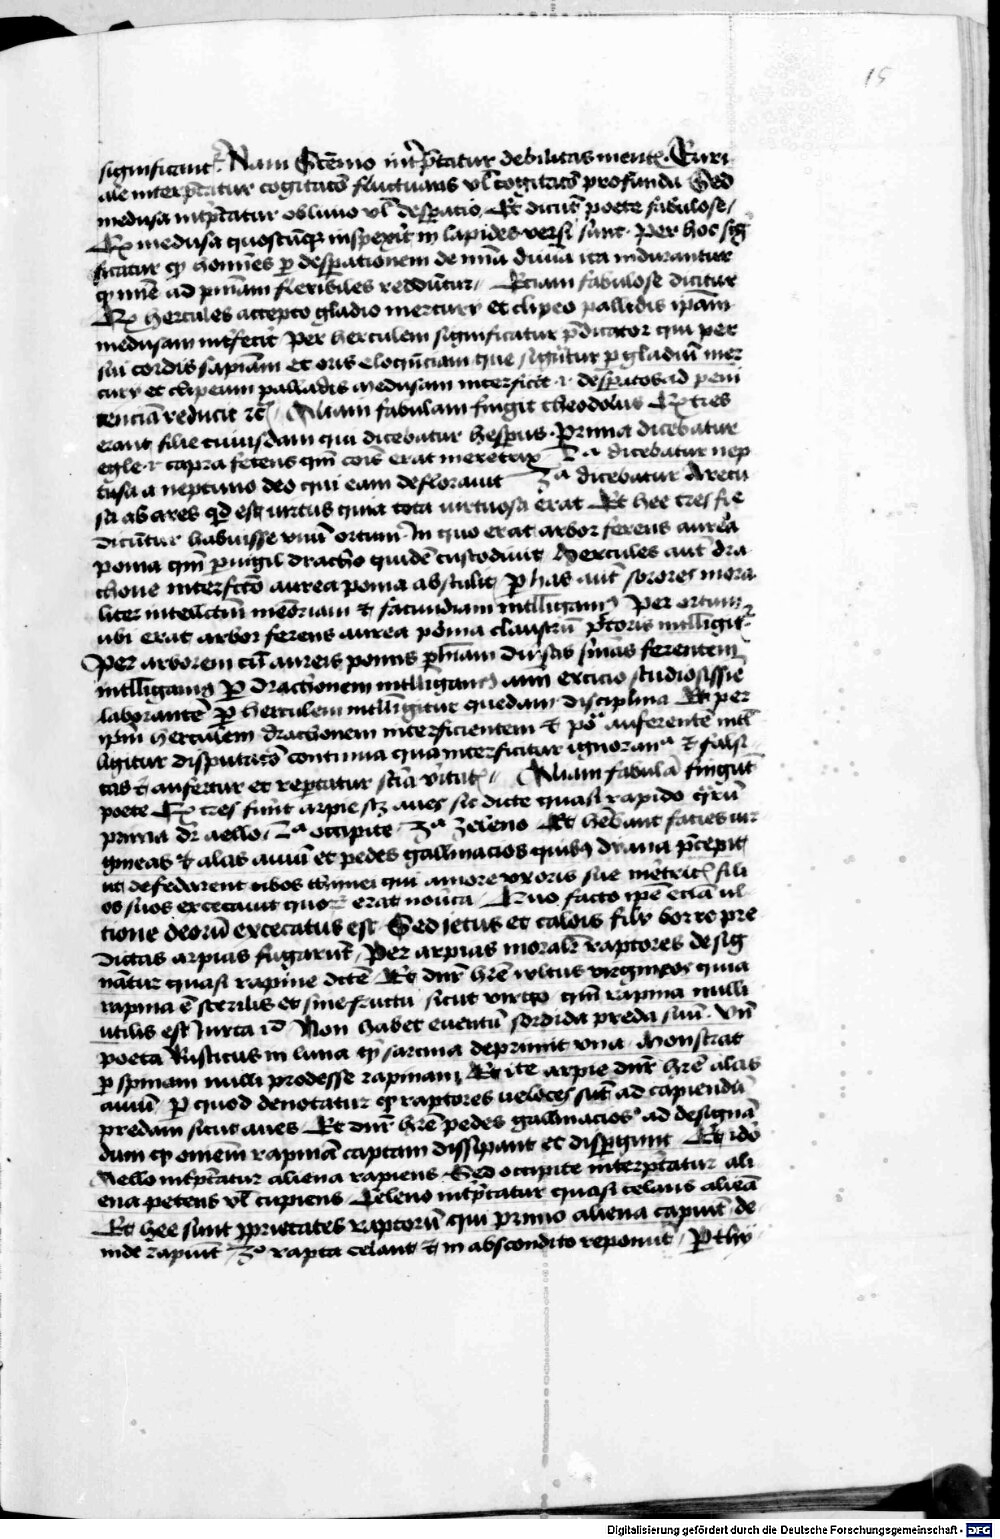 15
significant. Nam Stenio int͛p̄tatur debilitas ment͛. Euri
ale interp̄tatur cogitac̄o fluctuans vl̄ cogitac̄o profunda Sed
medusa int͛p̄tatur oblivio vl̄ desperatio. Et dicūt poete fabulose
medusa quoscūq inspexit in lapides versi sunt. Per hoc sig
ficatur qꝫ homīes ꝑ desperationem de mīa diuīa ita indurantur
ad pnīam flexibiles reddūtur. Etiam fabulose dicitur
hercules accepto gladio mercury et clipeo pallidis ipām
medusam int͛fecit Per herculem significatur p̄dicator qui per
sui cordis sapīam et oris eloquēciam que sigūtur ꝑ gladiū mer
cury et clipeum palladis medusam interficit ⁊ desperatos ad peni
tenciā reducit ⁊c̄ Aliam fabulam fingit theodolus tres
erant filie cuiusdam qui dicebatur hesperus. Prima dicebatur
egle ⁊ capra fetens qm̄ erat meretrix 2ᵃ dicebatur nep
tusa a neptuno deo qui eam deflorauit 3ᵃ dicebatur Aretu
sa ab ares qd̄ est uirtus quia tota uirtuosa erat Et hee tres
dicūtur habuisse vnū ortum. In quo erat arbor ferens aurea
poma qm̄ ꝑuigil dracho quidē custodiuit Hercules aut̄ dra
chone interfecto aurea poma abstulit ꝑ has aut̄ sorores mora
liter intellectum memoriam et facundiam intelligam⁹ Per ortum
ubi erat arbor ferens aurea poma claustrū intelligit.
Per arborem cū aureis pomis ph̄iam diu͛sas sniās ferentem
intelligam⁹ Per drachonem intelligam⁹ studiosissīe
laborantē Per herculem intelligitur quedam disciplina Et per
ipm̄ herculem drachonem interficientem et po͛ auferentē intel
ligitur disputac̄o continua qua interficitur ignorancia ⁊ falsi
tas ⁊ aufertur et reperitur Aliam fabulā fingūt
poete tres fuīt arpie sꝫ aues sic dicte quasi rapido
prima dr̄ aello. 2ᵃ occipite. 3ᵃ zeleno Et hebant facies uir
gineas et alas auiū et pedes gallinacios quibus p̄cepit
ut defedarent cibos qui amore vxoris sue filios
os suos excecauit quorꝫ erat nouerca Quo facto ipē eciā ul
tione deorū excecatus est Sed zetus et calois filij borre pre
dictas arpias fugarūt. Per arpias moralit͛ raptores desig
nātur quasi rapine dicte Et dnr̄ hr̄e vultus virgineos quia
rapina ē sterilis et sine fructu sicut virgo qm̄ rapina nulli
utilis est Iuxta id Non habet euentū sordida preda suū. Vn̄
poeta Rusticus in luna qꝫ sarcina deprimit vna Monstrat
ꝑ spinam nulli prodesse rapinam Et ite arpie dnr̄ hr̄e alas
auiū Per quod denotatur qꝫ raptores veloces sūt ad capiendā
predam sicut aues Et dnr̄ hr̄e pedes gallinacios ad designā
dum qꝫ omēm rapinā captam dissipant et disꝑgunt Et
Aello int͛p̄tatur aliena rapiens Sed occipite interp̄tatur ali
ena petens vl̄ cupiens Celeno int͛p̄tatur quasi celans alienā
Et hee sunt ꝓprietates raptorū qui primo aliena capiūt de
inde rapiūt 3° rapta celant et in abscondito reponūt. Per thy
Digitalisierung gefördert durch die Deutsche Forschungsgemeinschaft - DFG